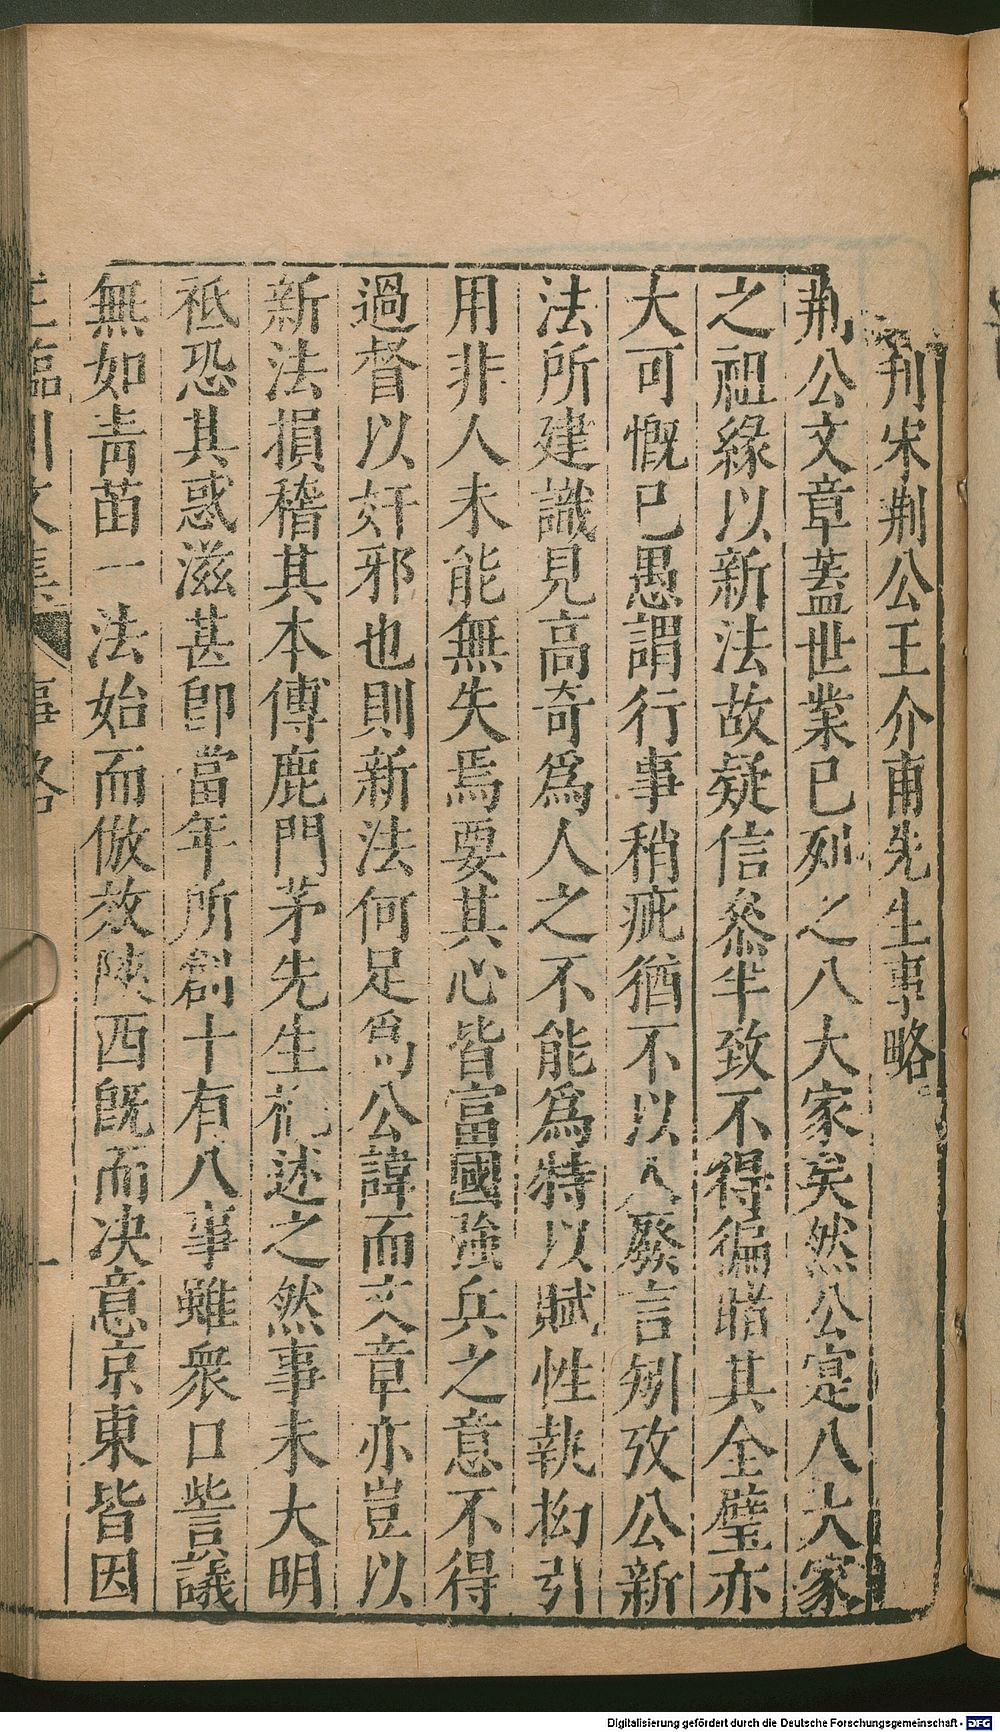 刋宋荆公王介甫先生事略
荆公文章蓋世業已列之八大家矣然公寔八大家
之祖緣以新法故疑信叅半致不得徧睹其全璧亦
大可慨已愚謂行事稍疵猶不以人廢言矧攷公新
法所建識見高奇爲人之不能爲特以賦性執拘引
用非人未能無失焉要其心皆富國強兵之意不得
過督以奸邪也則新法何足爲公諱而文章亦豈以
新法損稽其本傳鹿門茅先生述之然事未大明
祗恐其惑滋甚卽當年所創十有八事雖衆口訾議
無如青苗一法始而倣效陝西旣而决意京東皆因
王臨川文集 事略 一
Digitalisierung gefördert durch die Deutsche Forschungsgemeinschaft - DFG